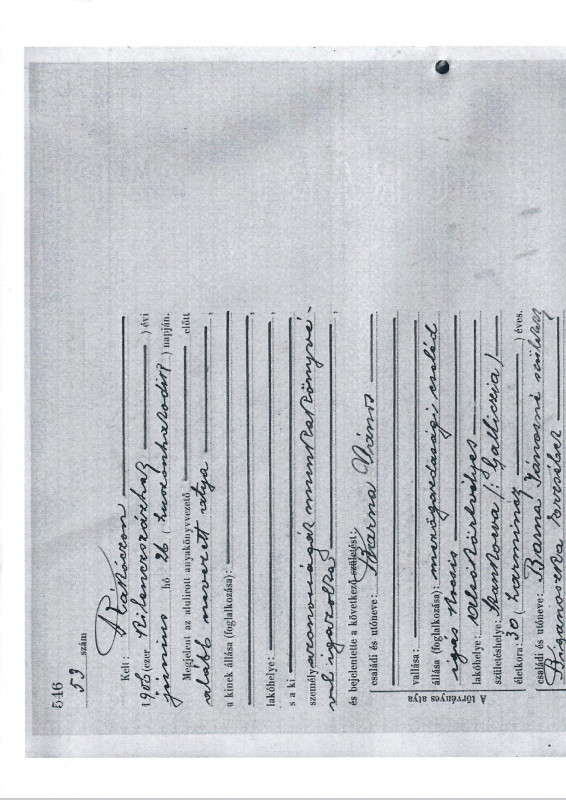 546
53 szám
Kelt: Rákóczon
1906 (ezer kilenczszázhat) évi
junius hó 26 (huszonhatodik) napján.
Megjelent az alulirott anyakönyvvezető előtt
alább nevezett atya,
a kinek állása (foglalkozása):
lakóhelye:
s a ki
személyazonosságát munkakönyvé-
vel igazolta
és bejelentette a következő születést:
A törvényes atya
családi és utóneve: Barna János
vallása:
állása (foglalkozása): mezőgazdasági cseléd
igás kocsis
lakóhelye: Alsókörtvélyes
születéshelye: (: Galliczia)
életkora: 30 (harmincz) éves.
családi és utóneve: Barna Jánosné született
Erzsébet